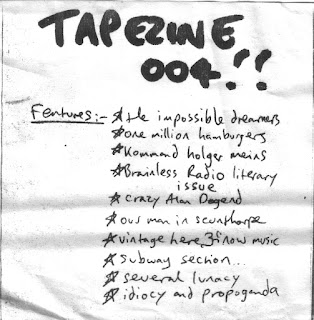 TAPEZINE
004!!
Features:- ☆the impossible dreamers
☆one million hamburgers
☆Kommand holger meins
☆Brainless Radio literary
issue
☆crazy Alan
☆our man in scunthorpe
☆vintage here, 3 now music
☆subway section...
☆several lunacy
☆idiocy and propoganda